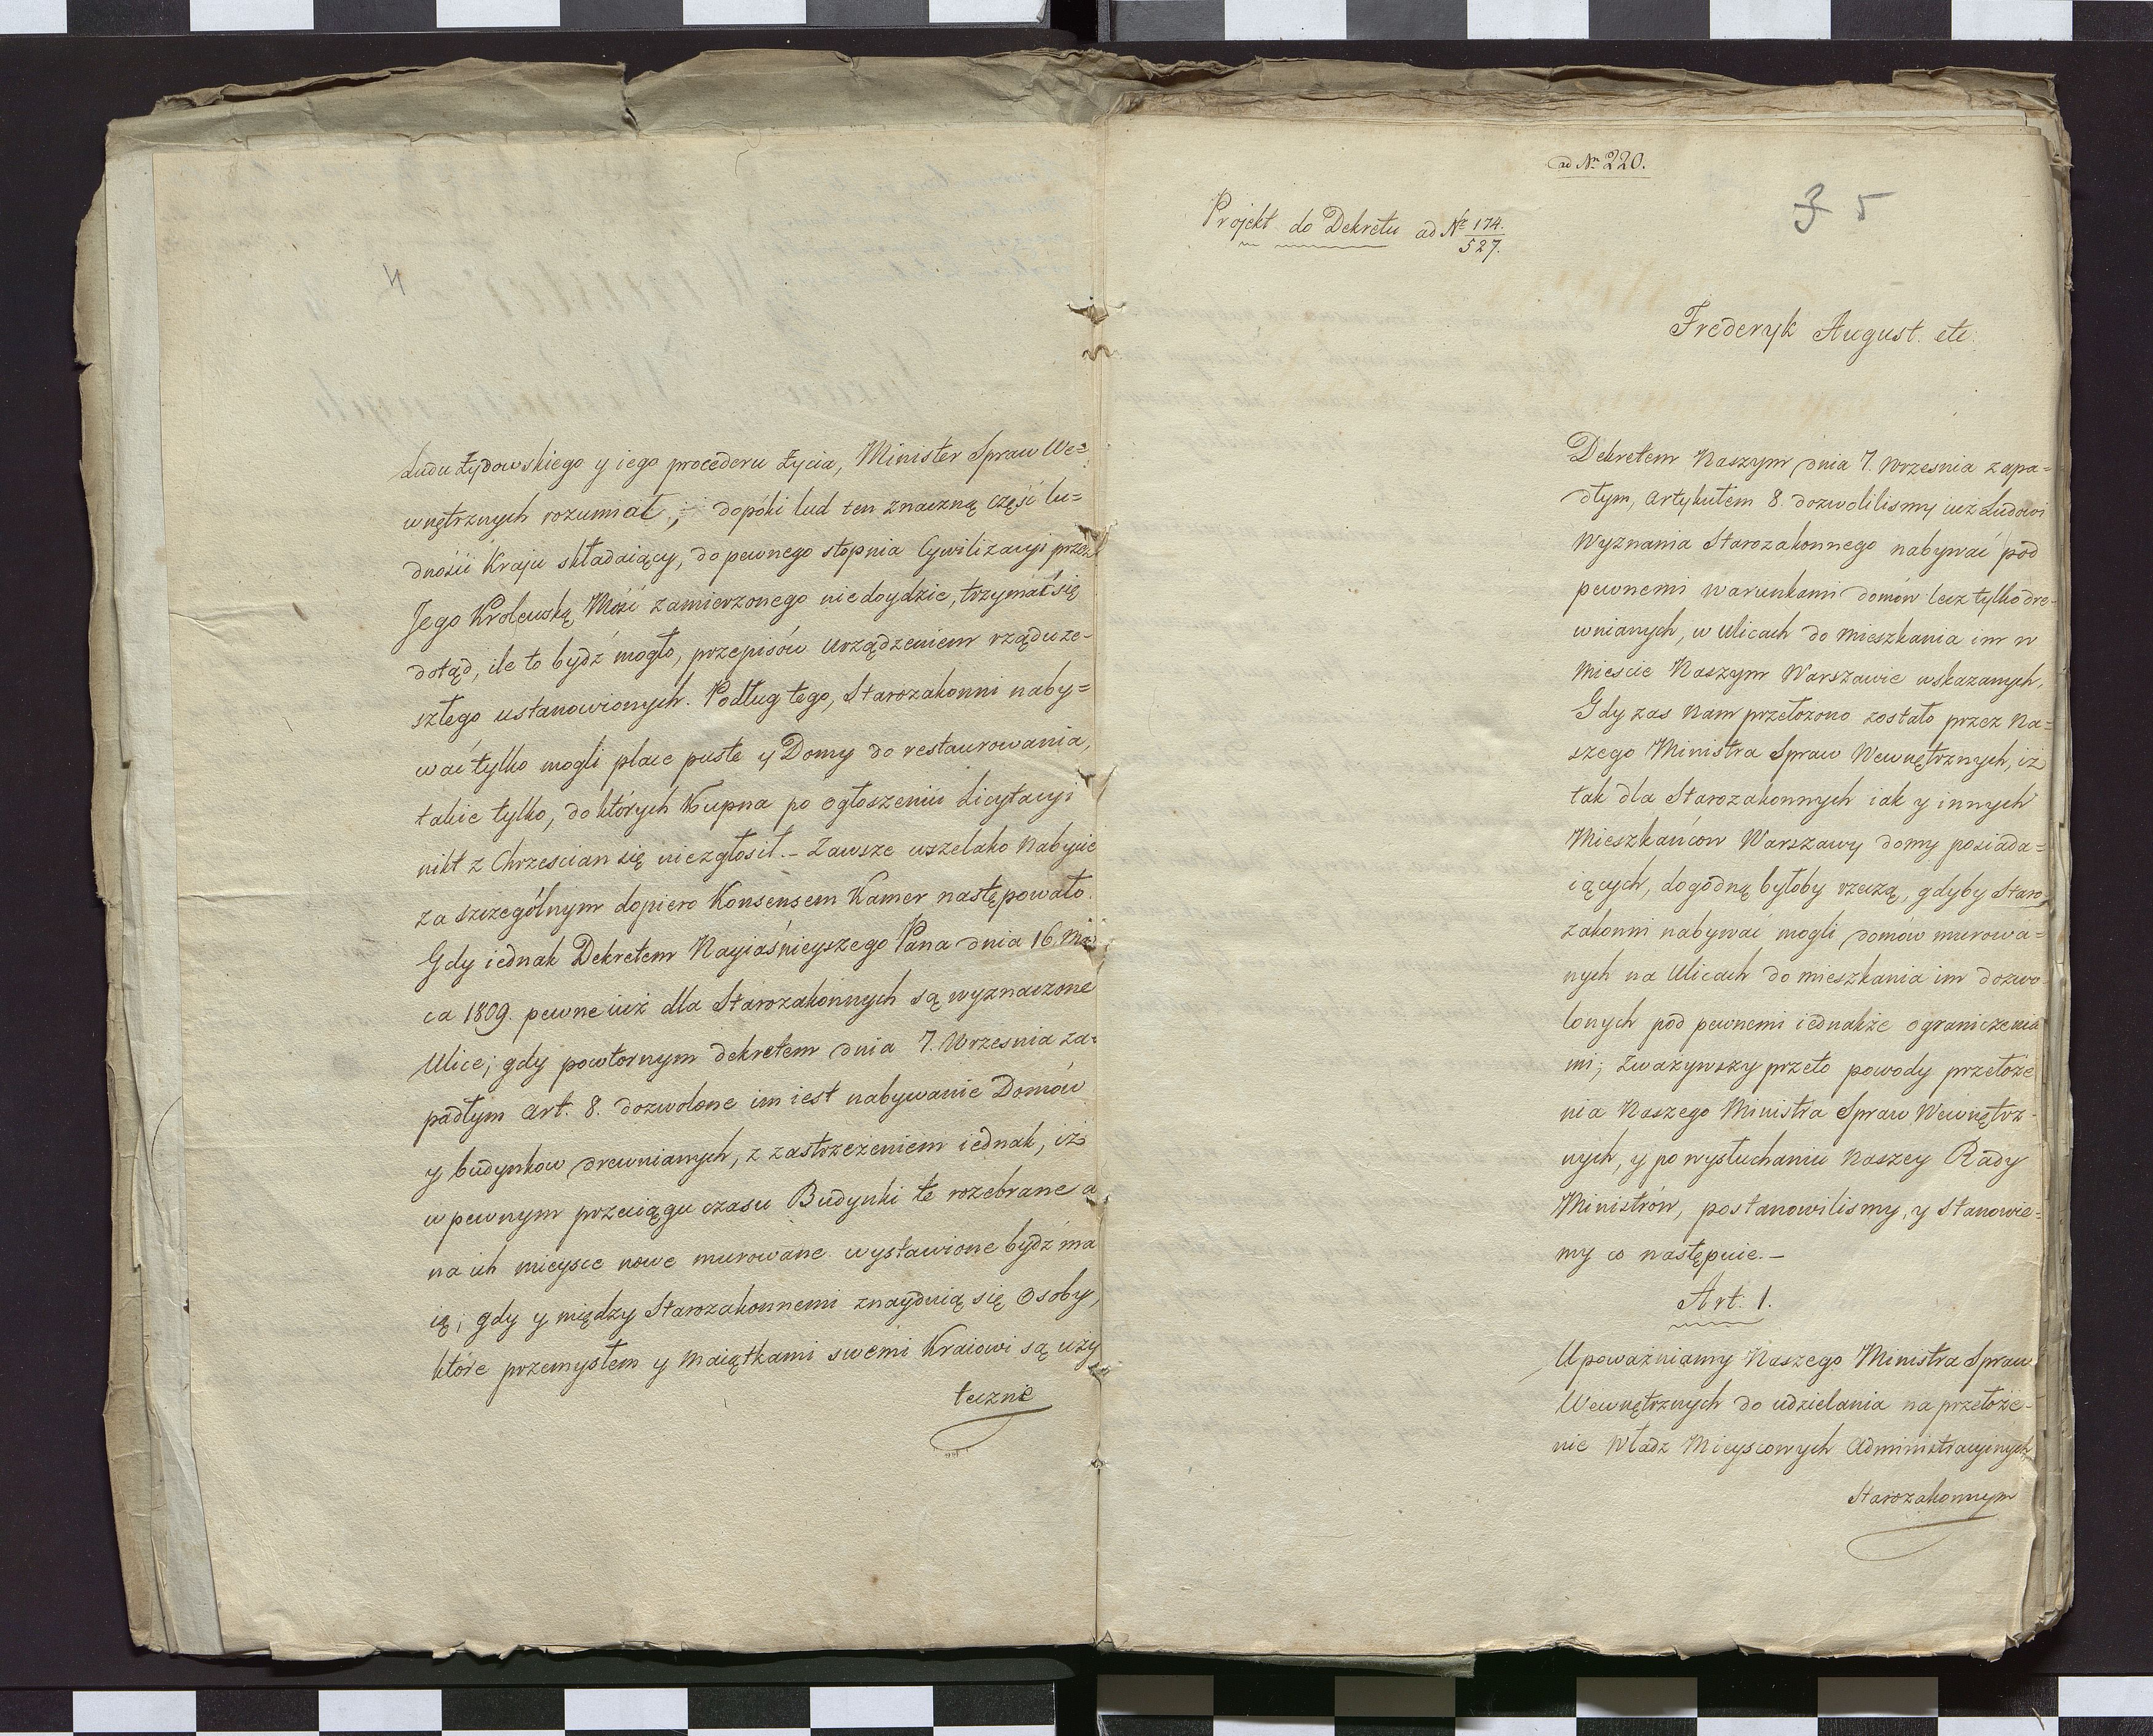 4
Ludu Żydowskiego y iego procederu życia, Minister Spraw We=
wnętrznych rozumiał, dopóki lud ten znaczną część lu=
dności Kraju składaiący, do pewnego stopnia Cywilizacyi przez
Jego Krolewską Mość zamierzonego niedoydzie, trzymać się
dotąd, ile to bydź mogło, przepisów urządzeniem rządu ze=
szłego ustanowionych. Podług tego, Starozakonni naby=
wać tylko mogli place puste y Domy do restaurowania,
takie tylko, do których Kupna po ogłoszeniu Licytacyi
nikt z Chrzescian się niezgłosił. – Zawsze wszelako Nabycie
za szczególnym dopiero Konsensem Kamer następowało.
Gdy iednak Dekretem Nayiaśnieyszego Pana dnia 16. Mar
ca 1809. pewne iuż dla Starozakonnych są wyznaczone
Ulice; gdy powtornym dekretem dnia 7. Wrzesnia za=
padłym art. 8. dozwolone im iest nabywanie Domów
y budynkow drewnianych, z zastrzeżeniem iednak, iż
w pewnym przeciągu czasu Budynki te rozebrane a
na ich mieysce nowe murowane wystawione bydź ma
ią; gdy y między Starozakonnemi znayduią się Osoby,
które przemysłem y Maiątkami swemi Kraiowi są uży
teczne
ad Nr 220.
3 5
Projekt do Dekretu ad Nr 174.
527.
Frederyk August. etc.
Dekretem Naszym dnia 7. Wrzesnia zapa=
dłym, artykułem 8. dozwolilismy iuż Ludowi
Wyznania Starozakonnego nabywać pod
pewnemi warunkami domow lecz tylko dre=
wnianych, w ulicach do mieszkania im w
Miescie Naszym Warszawie wskazanych,
Gdy zas Nam przełozono zostało przez Na=
szego Ministra Spraw Wewnętrznych, iż
tak dla Starozakonnych iak y innych
Mieszkańcow Warszawy domy posiada=
iących, dogodną byłoby rzeczą, gdyby Staro=
zakonni nabywać mogli domow murowa=
nych na Ulicach do mieszkania im dozwo=
lonych pod pewnemi iednakże ograniczenia
mi; Zważywszy przeto powody przełoże
nia Naszego Ministra Spraw Wewnętrz=
nych, y po wysłuchaniu Naszey Rady
Ministrów, postanowilismy, y Stanowie=
my co następuie. –
Art. 1.
Upoważniamy Naszego Ministra Spraw
Wewnętrznych do udzielania na przełoże=
nie Władz Mieyscowych Administracyinych
Starozakonnym